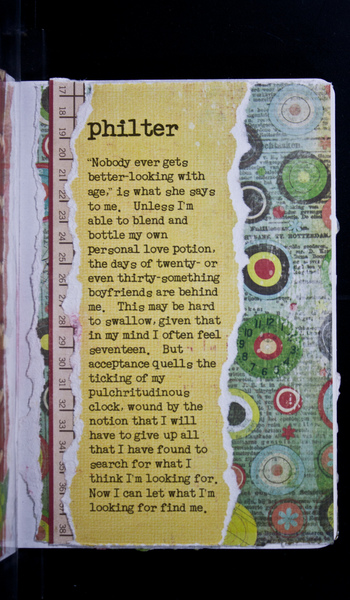 17
18
19
20
21
22
23
24
25
26
28
29
30
31
32
33
34
35
36
37
38
philter
"Nobody ever gets
better-looking with
age," is what she says
to me. Unless I'm
able to blend and
bottle my own
personal love potion,
the days of twenty- or
even thirty-something
boyfriends are behind
me. This may be hard
to swallow, given that
in my mind I often feel
seventeen. But
acceptance quells the
ticking of my
pulchritudinous
clock, wound by the
notion that I will
have to give up all
that I have found to
search for what I
think I'm looking for.
Now I can let what I'm
looking for find me.